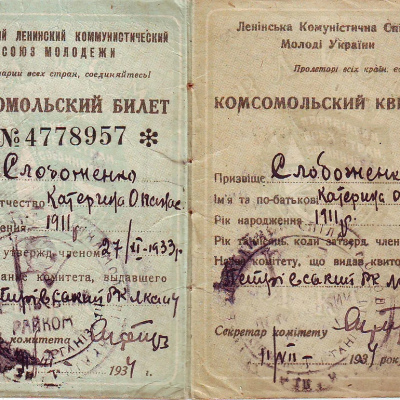 ИЙ ЛЕНИНСКИЙ КОММУНИСТИЧЕСКИЙ
СОЮЗ МОЛОДЕЖИ
арии всех стран, соединяйтесь!
ОМОЛЬСКИЙ БИЛЕТ
№ 4778957 *
Слобоженко
тчество Катерина
ения 1911
утвержд. членом 27/ 1933 г.
ание комитета, выдавшего
РАЙКОМ
комитета
1934 г.
Ленінська Комуністична Спі
Молоді України
Пролетарі всіх країн, є
КОМСОМОЛЬСКИЙ КВ
Прізвище Слобоженко
Ім'я та по-батькові Катерина О
Рік народження 1911 р.
Рік і місяць, коли затверд. член
Назва комітету, що видав квито
Петрівський РК
Секретар комітету
11/VII – 1934 р